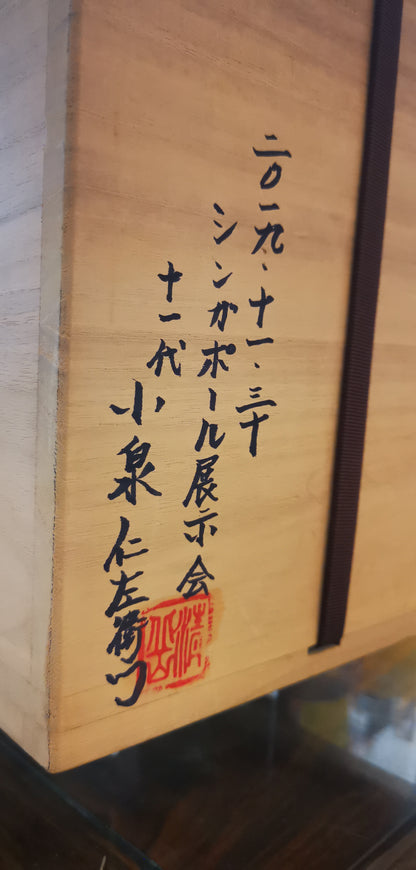 二〇一九、十一、三十
シンガポール展示会
十一代
小泉仁左衛門
清岳